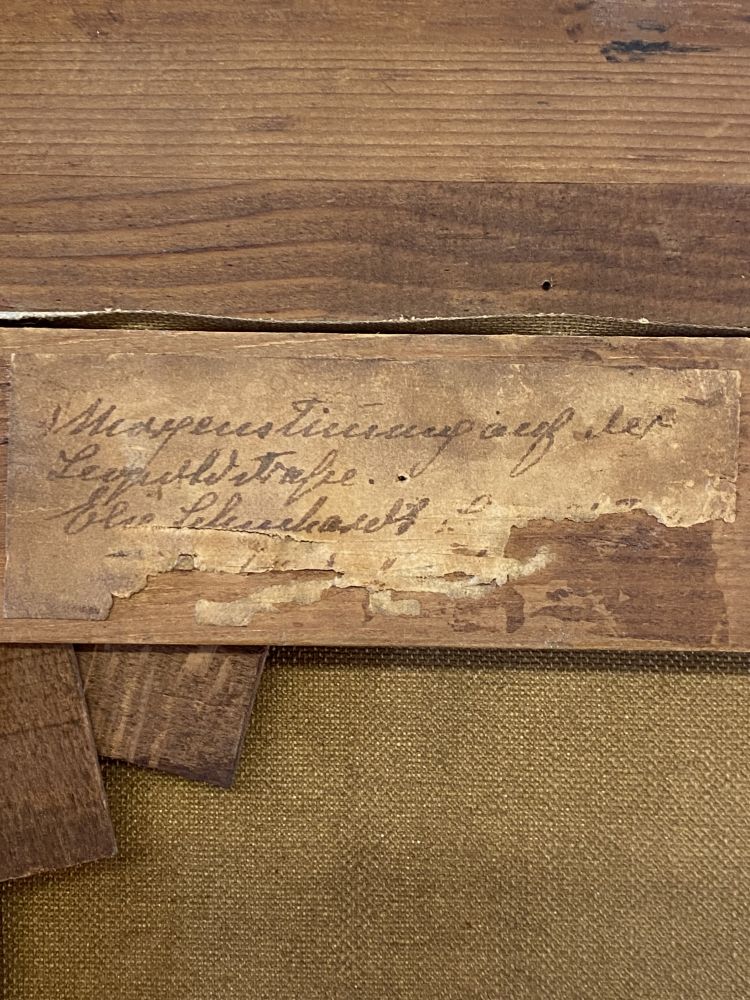 Morgenstimmung auf der
Leopoldstraße.
Elie Schuchardt